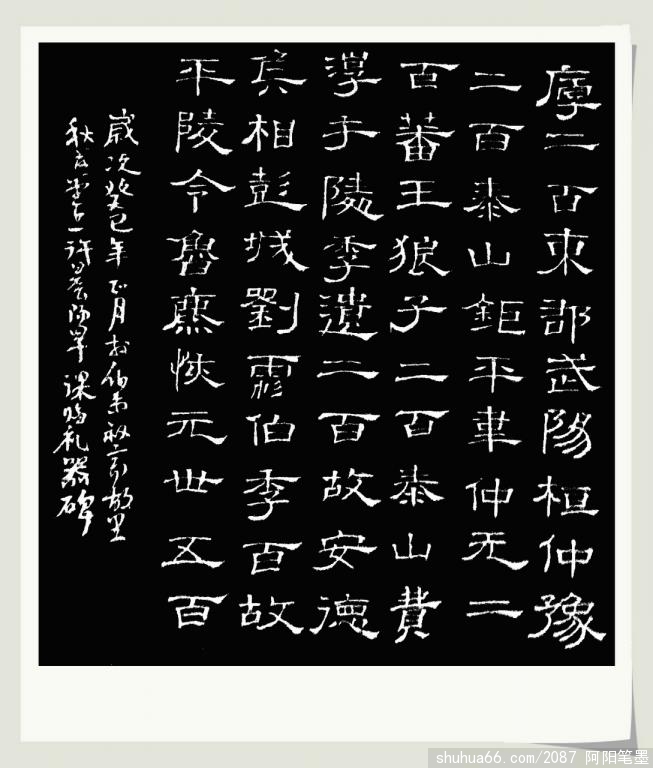 厚二百東郡武陽桓仲豫
二百泰山鉅平韋仲元二
百蕃王狼子二百泰山費
淳于隣季遺二百故安德
侯相彭城劉彪伯李百故
平陵令魯麃恢元世五百
歲次癸巳年正月於伯故里
秋堂許課臨礼器碑
shuhua66.com/2087 阿阳笔墨